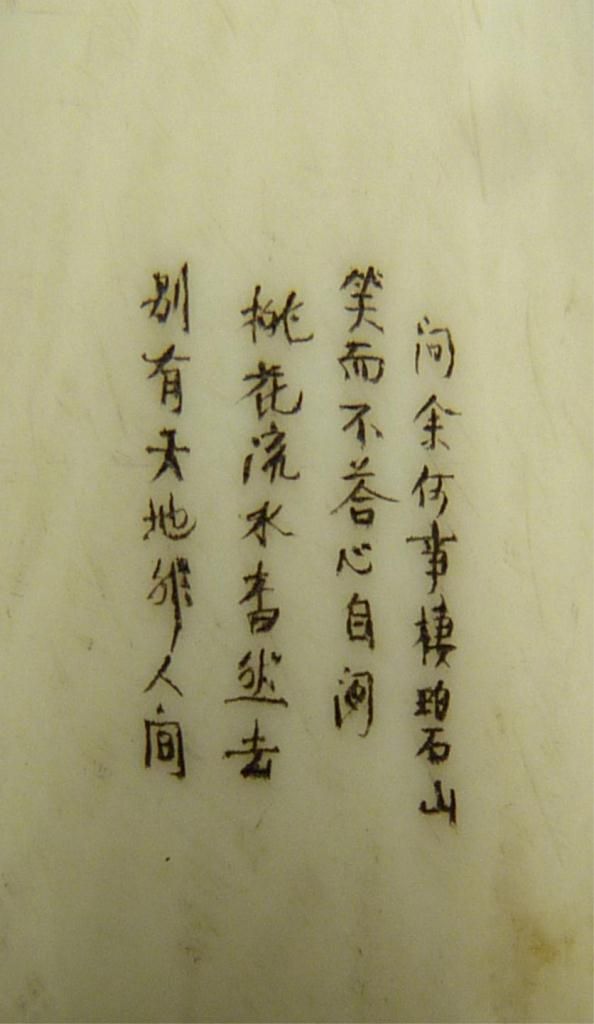 问余何事棲碧山
笑而不答心自闲
桃花流水杳然去
别有天地非人间